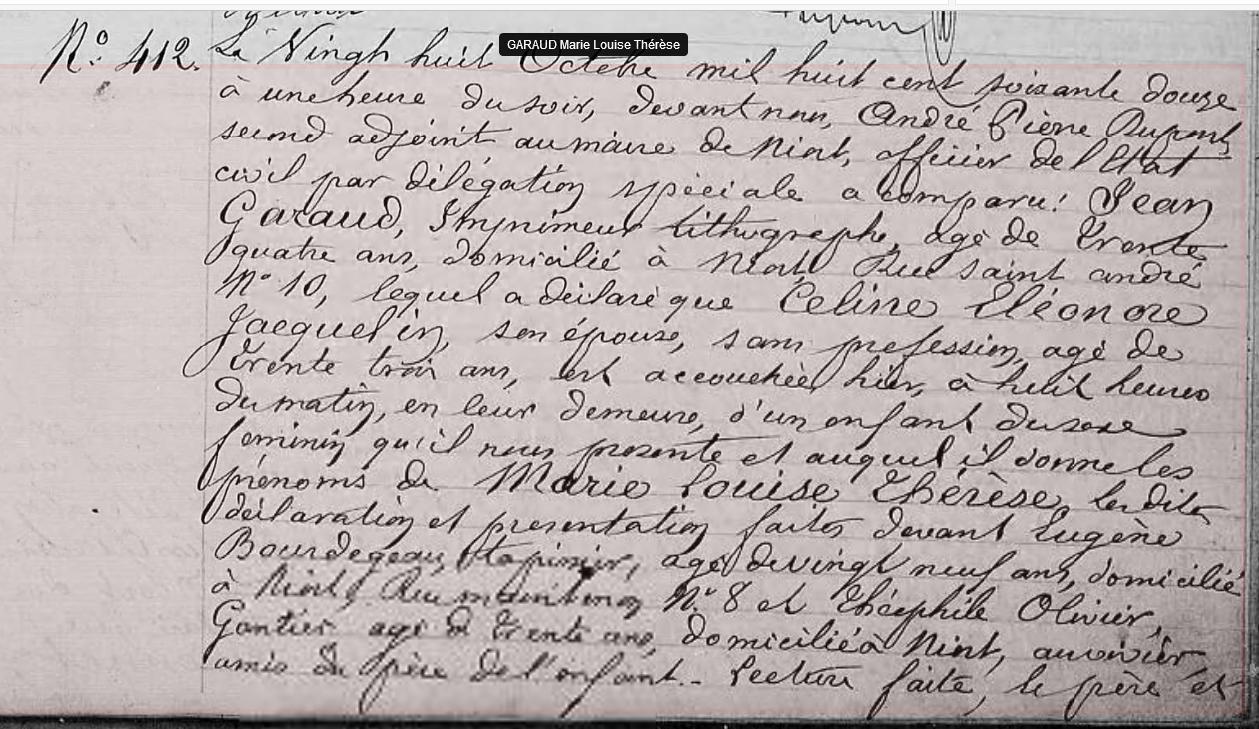 GARAUD Marie Louise Thérèse
N.º 412.
Le Vingh huit Octobre mil huit cent soixante douze
à une heure du soir, devant nous, André Pierre Dupont
second adjoint au maire de Niort, officier de l'Etat
civil par délégation spéciale a comparu: Jean
Garaud, Imprimeur lithographe, agé de trente
quatre ans, domicilié à Niort, Rue Saint andré
Nº 10, lequel a déclaré que Celine Eléonore
Jacquelin, son épouse, sans profession, agé de
trente trois ans, est accouchée, hier, à huit heures
du matin, en leur demeure, d'un enfant du sexe
feminin qu'il nous presente et auquel il donne les
prénoms de Marie Louise Thérèse, les dites
déclaration et presentation faites devant Eugène
Bourdegeau, tapissier, agé de vingt neuf ans, domicilié
à Niort, Rue maintenon Nº 8 et Théophile Olivier,
Gantier agé de trente ans, domicilié à Niort,
amis du père de l'enfant.- Lecture faite, le père et